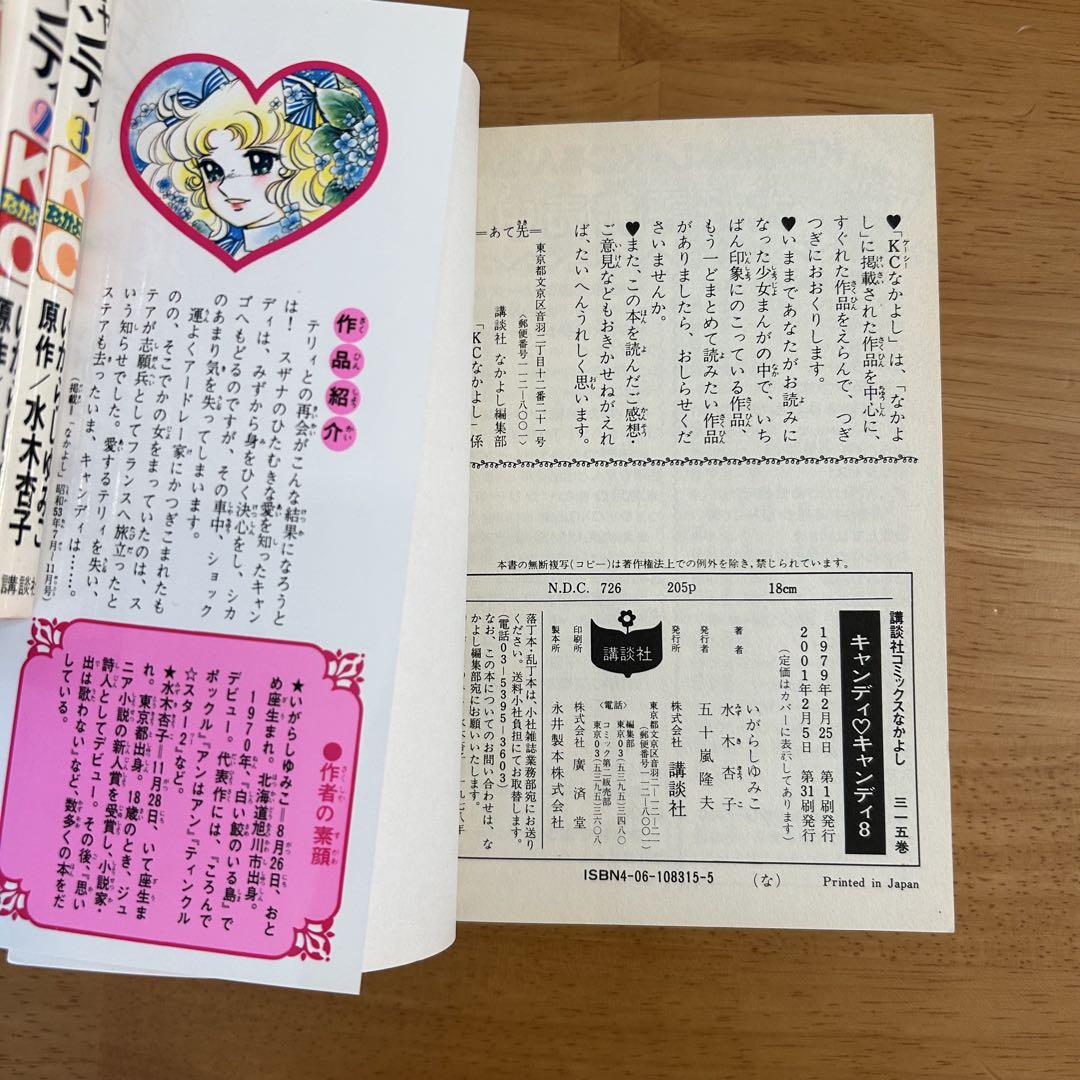 3
2
K
なかよし
C
原作/水木杏子
講談社
作品紹介
テリィとの再会がこんな結果になろうと
は! スザナのひたむきな愛を知ったキャン
ディは、みずから身をひく決心をし、シカ
ゴへもどるのですが、その車中、ショック
のあまり気を失ってしまいます。
運よくアードレー家にかつぎこまれたも
のの、そこでかの女をまっていたのは、ス
テアが志願兵としてフランスへ旅立ったと
いう知らせでした。愛するテリィを失い、
ステアも去ったいま、キャンディは……。
(掲載=「なかよし」昭和53年7月~11月号)
●作者の素顔
★いがらしゆみこ=8月26日、おと
め座生まれ。北海道旭川市出身。
1970年、『白い鮫のいる島』で
デビュー。代表作には、『ころんで
ポックル』『アンはアン』『ティンクル
☆スター2』など。
★水木杏子=11月28日、いて座生ま
れ。東京都出身。18歳のとき、ジュ
ニア小説の新人賞を受賞し、小説家・
詩人としてデビュー。その後、『思い
出は歌わない』など、数多くの本をだ
している。
♥「KCなかよし」は、「なかよ
し」に掲載された作品を中心に、
すぐれた作品をえらんで、つぎ
つぎにおおくりします。
♥いままであなたがお読みに
なった少女まんがの中で、いち
ばん印象にのこっている作品、
もう一どまとめて読みたい作品
がありましたら、おしらせくだ
さいませんか。
♥また、この本を読んだご感想・
ご意見などもおきかせねがえれ
ば、たいへんうれしく思います。
=あて先=
東京都文京区音羽二丁目十二番二十一号
〈郵便番号 一一二-八〇〇一〉
講談社 なかよし編集部
「KCなかよし」係
本書の無断複写(コピー)は著作権法上での例外を除き,禁じられています。
N.D.C. 726 205p 18cm
講談社コミックスなかよし 三一五巻
キャンディ♡キャンディ8
1979年2月25日 第1刷発行
2001年2月5日 第31刷発行
(定価はカバーに表示してあります)
著者 いがらしゆみこ
水木杏子
発行者 五十嵐隆夫
発行所 株式会社 講談社
東京都文京区音羽二-一二-二一
(郵便番号一一二-八〇〇一)
〈電話〉編集部 東京03(五三九五)三四八〇
コミック第二販売部 東京03(五三九五)三六〇八
講談社
印刷所 株式会社 廣済堂
製本所 永井製本株式会社
落丁本・乱丁本は、小社雑誌業務部宛にお送り
ください。送料小社負担にてお取替します。
(電話03-5395-3603)
なお、この本についてのお問い合わせは、な
かよし編集部宛にお願いいたします。
ISBN4-06-108315-5 (な) Printed in Japan